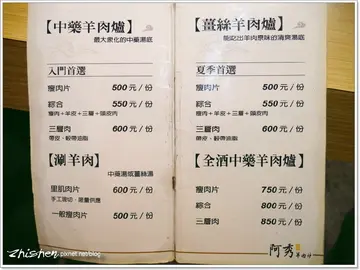 【中藥羊肉爐】
最大眾化的中藥湯底
入門首選
瘦肉片 500元/份
綜合 550元/份
瘦肉+羊皮+三層+頭皮肉
三層肉 600元/份
帶皮、較帶油脂
【涮羊肉】
中藥湯或薑絲湯
里肌肉片 600元/份
手工現切、限量供應
一般瘦肉片 500元/份
【薑絲羊肉爐】
能吃出羊肉原味的清爽湯底
夏季首選
瘦肉片 500元/份
綜合 550元/份
瘦肉+羊皮+三層+頭皮肉
三層肉 600元/份
帶皮、較帶油脂
【全酒中藥羊肉爐】
瘦肉片 750元/份
綜合 800元/份
三層肉 850元/份
阿秀
Zhishen.pixnet.net/blog